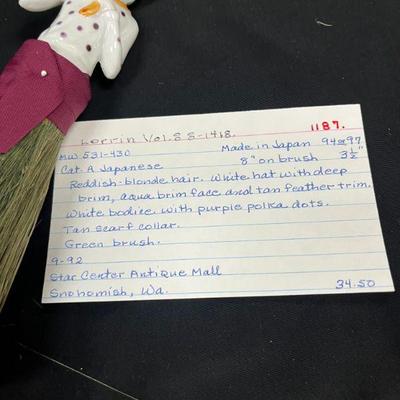 1187.
Lorrin Vol. S S-1418.
MW 531-430 Made in Japan 94 or 97
Cat. A Japanese 8" on brush 3½"
Reddish-blonde hair. White hat with deep
brim, aqua brim face and tan feather trim.
White bodice with purple polka dots.
Tan scarf collar.
Green brush.
9-92
Star Center Antique Mall
Snohomish, Wa. 34.50